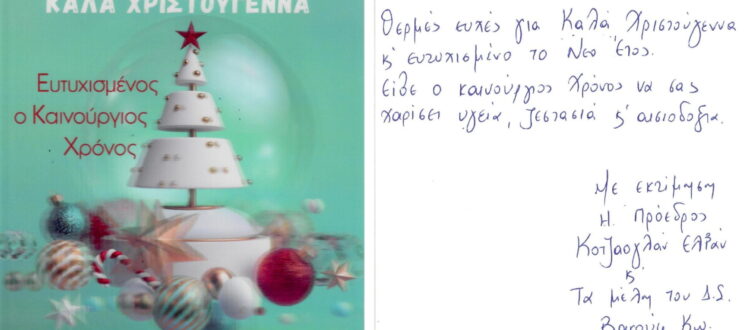 ΚΑΛΑ ΧΡΙΣΤΟΥΓΕΝΝΑ
Ευτυχισμένος
ο Καινούργιος
Χρόνος
Θερμές ευχές για Καλά Χριστούγεννα
κ' ευτυχισμένο το Νέο Έτος.
Είθε ο καινούργιος Χρόνος να σας
χαρίσει υγεία, ζεστασιά κ' αισιοδοξία.
Με εκτίμηση
Η Πρόεδρος
Κοτζαογλάν
κ'
Τα μέλη του Δ.Σ.